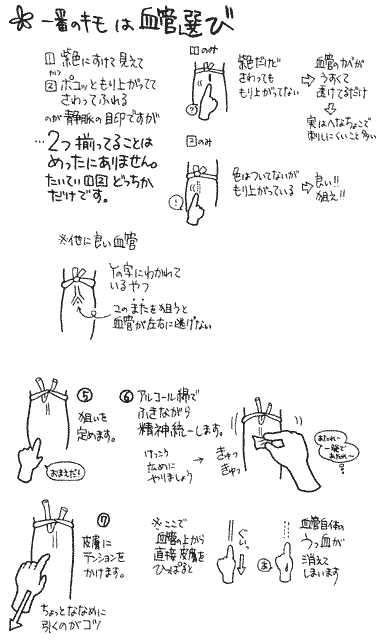 ※一番のキモは血管選び
1 紫色にすけて見えて
かつ
2 ポコッともり上がってて
さわってふれる
のが静脈の目印ですが
…2つ揃ってることは
めったにありません。
たいてい12どっちか
だけです。
1のみ
紫色だけど
さわっても
もり上がってない
⇨
血管のカベが
うすくて
透けてるだけ
実はへなちょこで
刺しにくいこと多い
?
2のみ
色はついてないが
もり上がっている
⇨
良い!!
狙え!!
!
※他に良い血管
Yの字にわかれて
いるやつ
このまたを狙うと
血管が左右に逃げない
⑤
狙いを
定めます。
おまえだ!
⑥ アルコール綿で
ふきながら
精神統一します。
けっこう
広めに
やりましょう
→
きゅっ
きゅっ
あたれー
一発で
あたれー
⑦
皮膚に
テンションを
かけます。
ちょっとななめに
引くのがコツ
※ここで
血管の上から
直接皮膚を
ひっぱると
ぐいっ
あ
血管自体の
うっ血が
消えて
しまいます